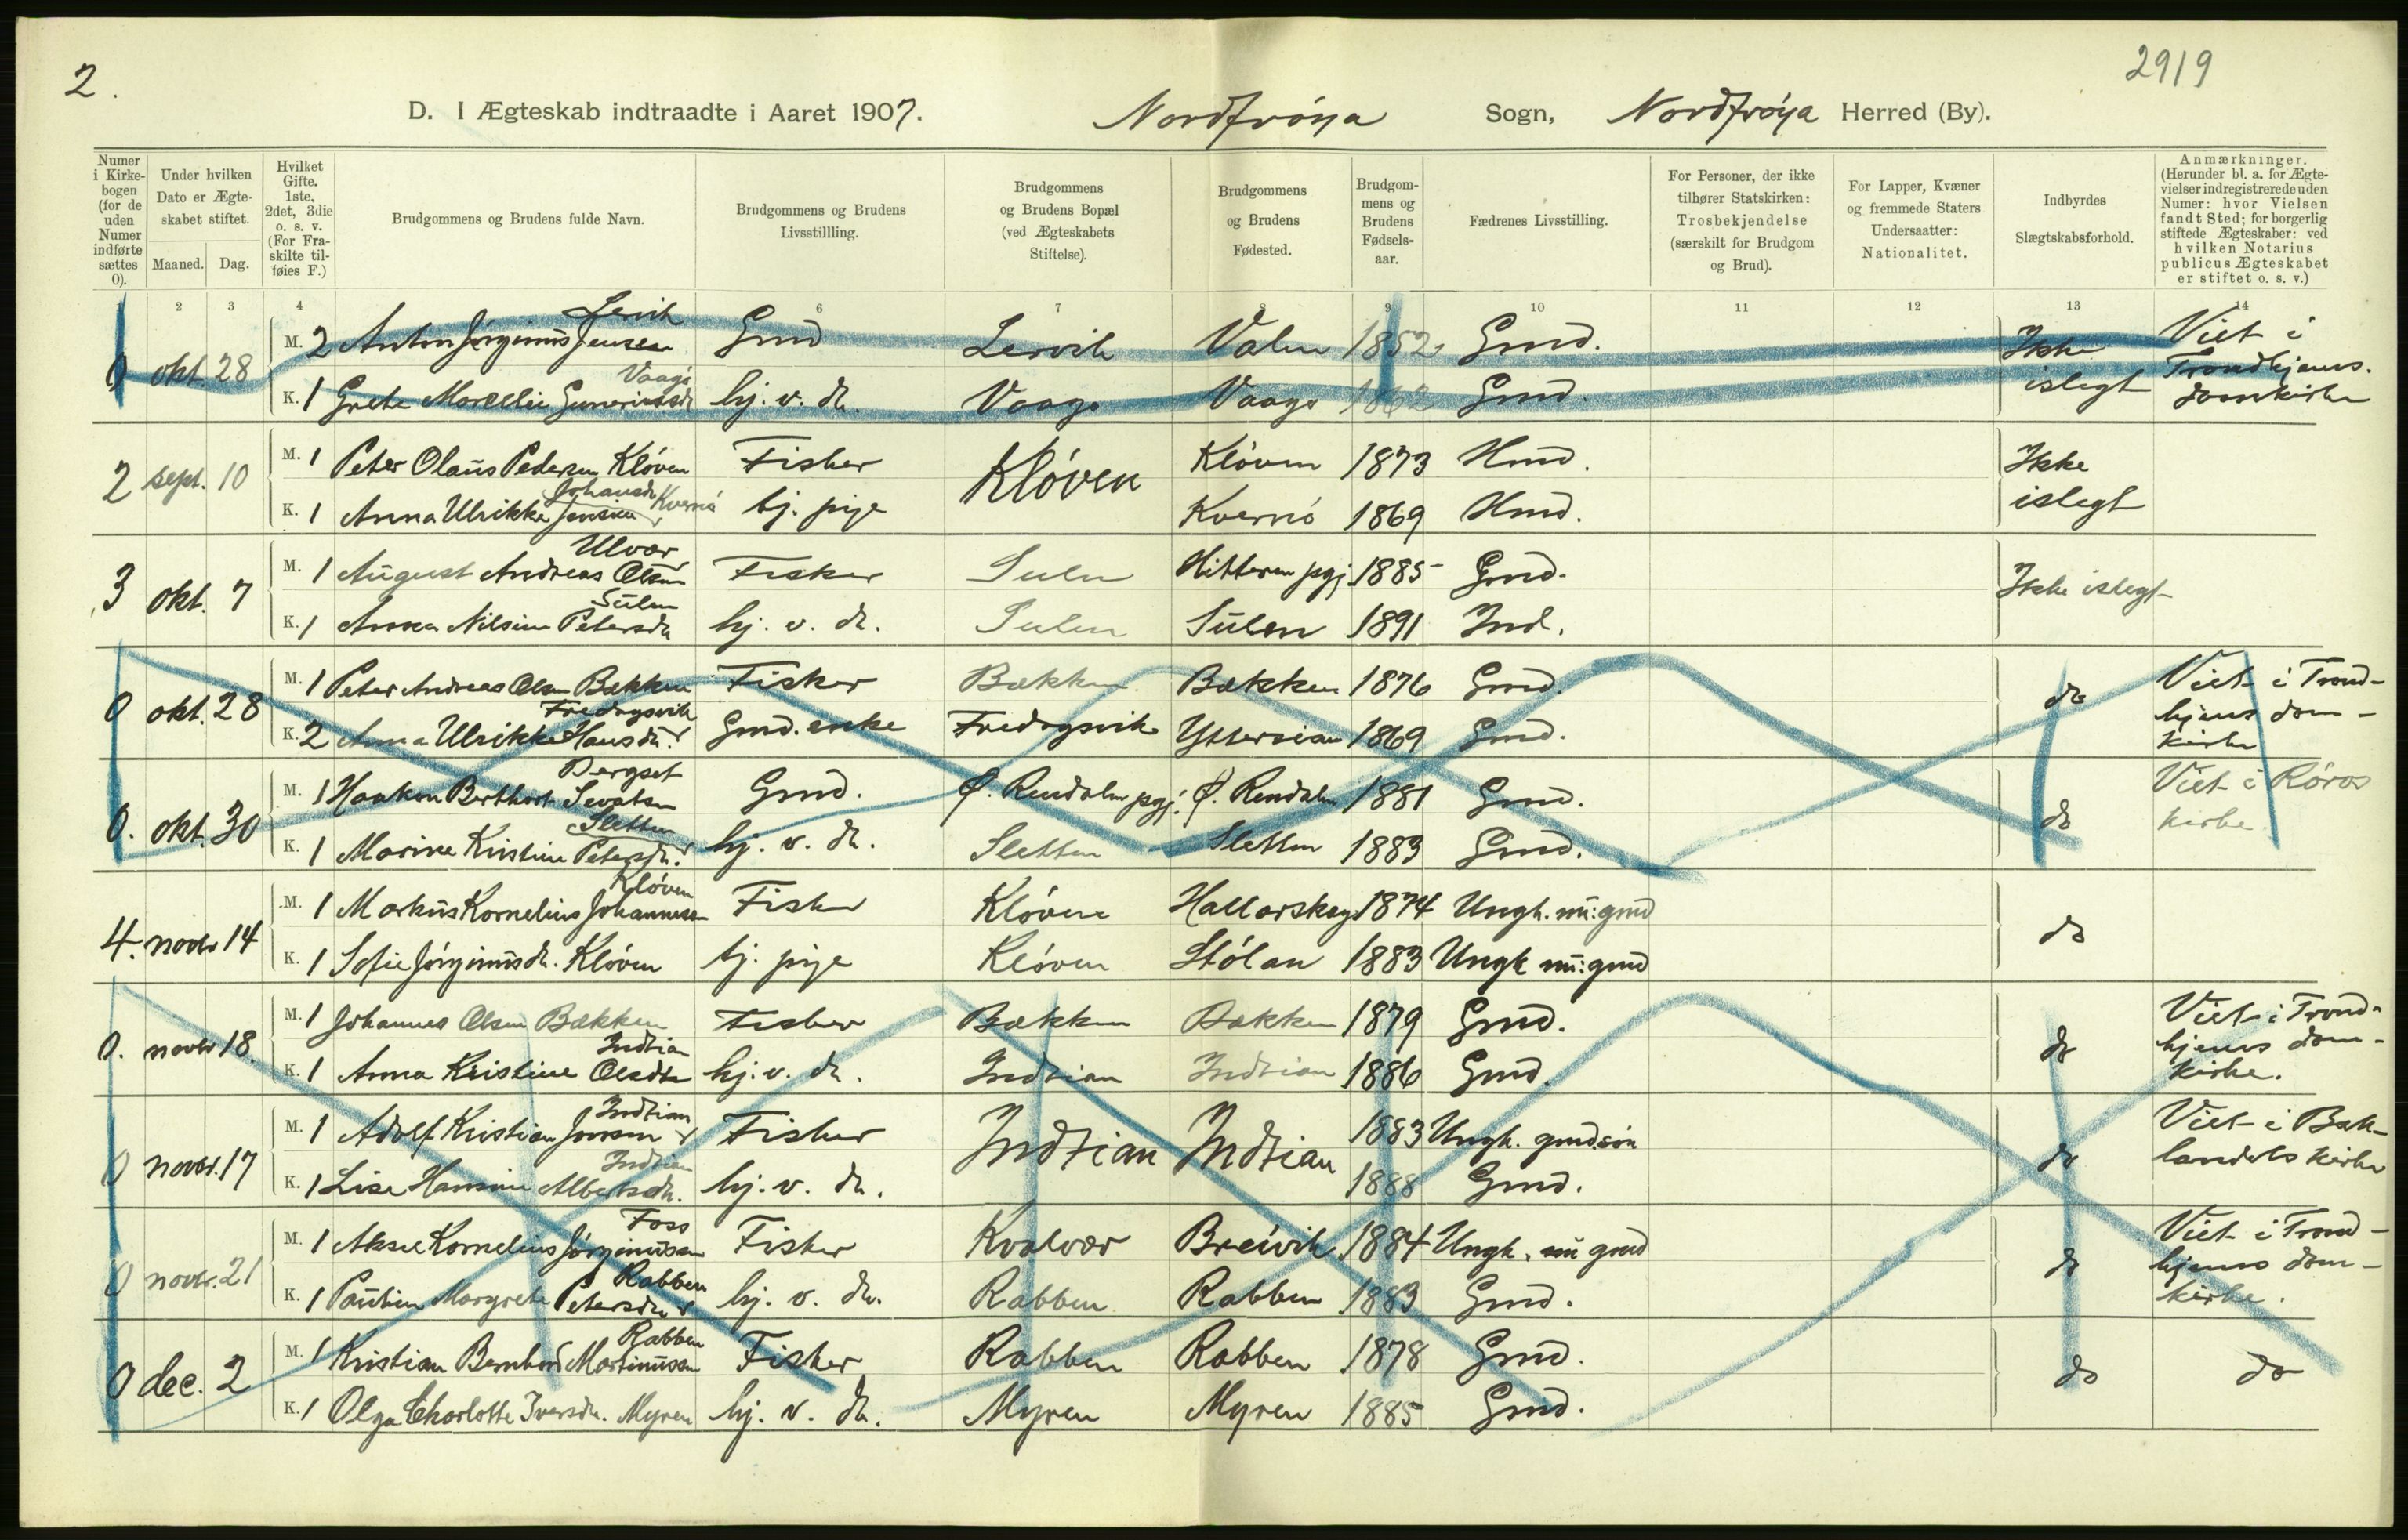 2.
2919
D. I Ægteskab indtraadte i Aaret 1907. Nordfröya Sogn, Nordfröya Herred (By).
Numer i Kirkebogen (for de uden Numer indførte sættes 0).
Under hvilken Dato er Ægteskabet stiftet.
Maaned. Dag.
Hvilket Gifte. 1ste, 2det, 3die o. s. v. (For Fraskilte tilføies F.)
Brudgommens og Brudens fulde Navn.
Brudgommens og Brudens Livsstillling.
Brudgommens og Brudens Bopæl (ved Ægteskabets Stiftelse).
Brudgommens og Brudens Fødested.
Brudgommens og Brudens Fødselsaar.
Fædrenes Livsstilling.
For Personer, der ikke tilhører Statskirken: Trosbekjendelse (særskilt for Brudgom og Brud).
For Lapper, Kvæner og fremmede Staters Undersaatter: Nationalitet.
Indbyrdes Slægtskabsforhold.
Anmærkninger. (Herunder bl. a. for Ægtevielser indregistrerede uden Numer: hvor Vielsen fandt Sted; for borgerlig stiftede Ægteskaber: ved hvilken Notarius publicus Ægteskabet er stiftet o. s. v.)
2 3 4 6 7 8 9 10 11 12 13 14
0 okt. 28 M. 2 Anton Jörginus Jensen Lervik Gmd Lervik Valen 1852 Gmd. Ikke islegt Viet i Trondhjems domkirke
K. 1 Grete Marcelie Gunerius Vaagö hj. v. dr. Vaagö Vaagö 1862 Gmd.
2 sept. 10 M. 1 Peter Olaus Pedersen Klöven Fisker Klöven Klöven 1873 Hmd. Ikke islegt
K. 1 Anna Ulrikke Johansdr Kvernö tj. pige Kvernö 1869 Hmd.
3 okt. 7 M. 1 August Andreas Olsen Ulvær Fisker Sulen Hitteren pgj 1885 Gmd. Ikke islegt
K. 1 Anna Nilsine Petersdr Sulen hj. v. dr. Sulen Sulen 1891 Ind.
0 okt. 28 M. 1 Peter Andreas Olsen Bækken Fisker Bækken Bækken 1876 Gmd. do Viet i Trondhjems domkirke
K. 2 Anna Ulrikke Hansdr. Fredagsvik Gmd. enke Fredagsvik Yttersian 1869 Gmd.
0. okt. 30 M. 1 Haakon Berthart Sevatsen Bergset Gmd. Ø. Rendalen pgj. Ø. Rendalen 1881 Gmd. do Viet i Röros kirke
K. 1 Marine Kristine Petersdr. Sletten hj. v. dr. Sletten Sletten 1883 Gmd.
4. novbr 14 M. 1 Markus Kornelius Johannesen Klöven Fisker Klöven Hallarskag 1874 Ungk. nu: gmd do
K. 1 Sofie Jörginusdr. Klöven tj. pige Klöven Stölan 1883 Ungk nu: gmd
0. novbr 18. M. 1 Johannes Olsen Bækken Fisker Bækken Bækken 1879 Gmd. do Viet i Trondhjems domkirke.
K. 1 Anna Kristine Olsdtr Indtian hj. v. dr. Indtian Indtian 1886 Gmd.
0 novbr. 17 M. 1 Adolf Kristian Jensen Indtian Fisker Indtian Indtian 1883 Ungk. gmdsön do Viet i Baklandets kirke
K. 1 Lise Hansine Albertsdr. Indtian hj. v. dr. 1888 Gmd.
0 novbr. 21 M. 1 Aksel Kornelius Jörginusen Foss Fisker Kvalvær Breivik 1884 Ungk. nu gmd do Viet i Trondhjems domkirke.
K. 1 Pauline Margrete Petersdr Rabben hj. v. dr. Rabben Rabben 1883 Gmd.
0 dec. 2 M. 1 Kristian Bernhard Martinussen Rabben Fisker Rabben Rabben 1878 Gmd. do do
K. 1 Olga Charlotte Iversdr. Myren hj. v. dr. Myren Myren 1885 Gmd.